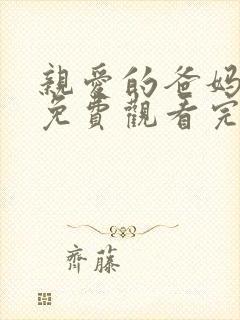 親愛的爸媽
免費觀看完
齊藤